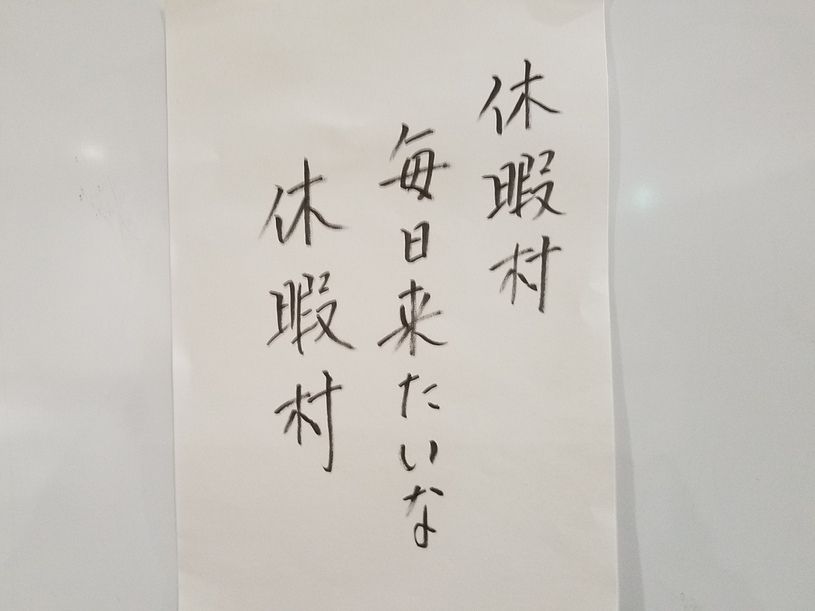 休暇村
毎日来たいな
休暇村